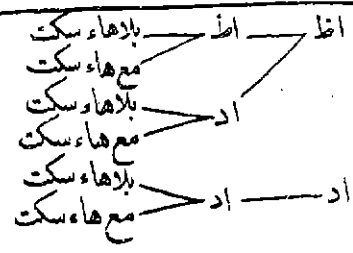 اظ اظ بلاهاء سكت
مع هاء سكت
اد بلاهاء سكت
مع هاء سكت
اد اد بلاهاء سكت
مع هاء سكت